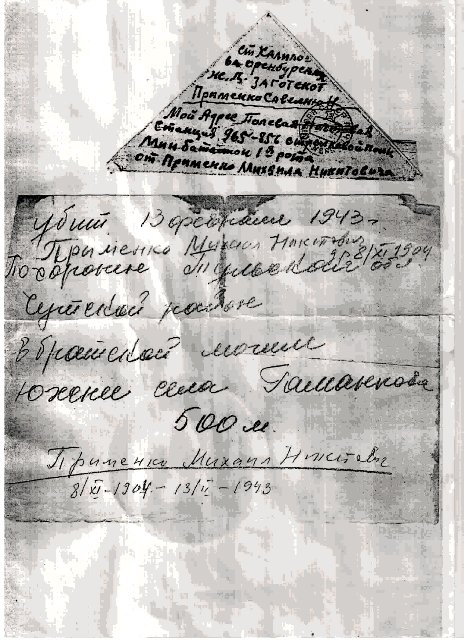 ст Халилов
ва Оренбургской
же. д. Заготскот
Применко Савелию Н
Мой Адрес Полевая почтовая
Станция 965-856 стрелковой полк
Мин батальон 1 я рота
от Применко Михаила Никитовича
убит 13 февраля 1943-
Применко Михаил Никитович
р. 8/XI 1904
Похоронен Тульской обл
район
в братской могиле
южнее села Гаманкова
500 м
Применко Михаил Никитович
8/XI-1904 - 13/II - 1943